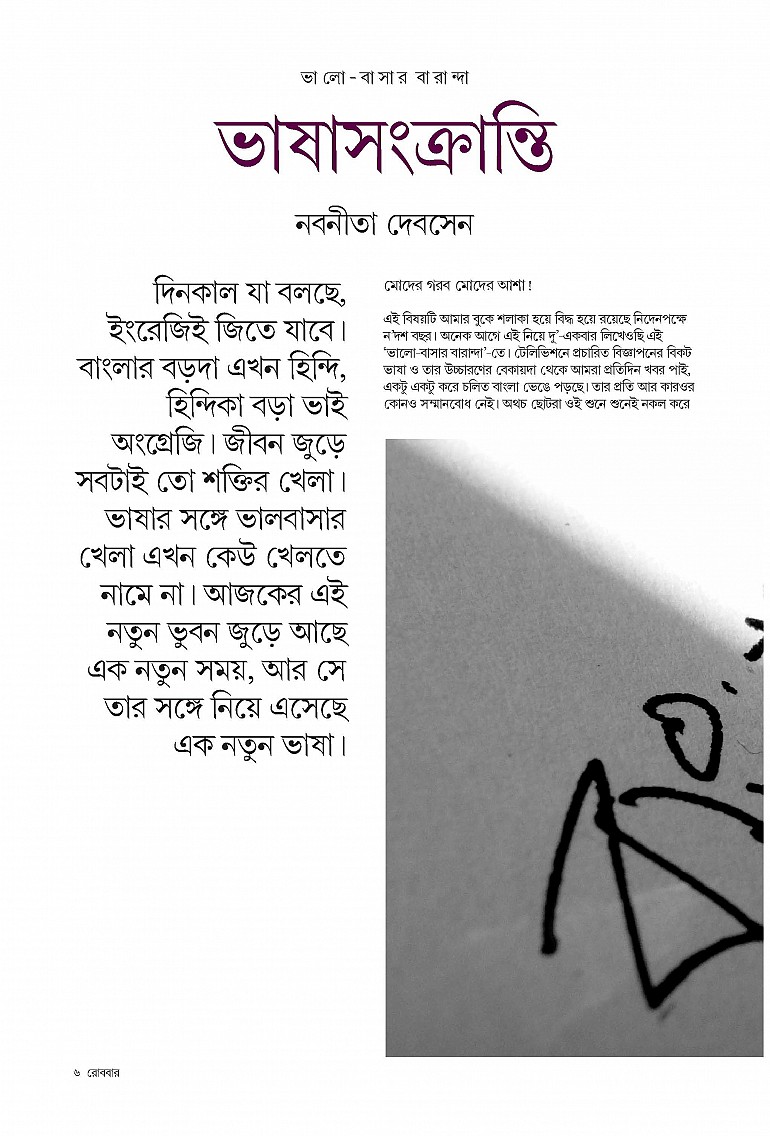 ভালো-বাসার বারান্দা
ভাষাসংক্রান্তি
নবনীতা দেবসেন
দিনকাল যা বলছে,
ইংরেজিই জিতে যাবে।
বাংলার বড়দা এখন হিন্দি,
হিন্দিকা বড়া ভাই
অংগ্রেজি। জীবন জুড়ে
সবটাই তো শক্তির খেলা।
ভাষার সঙ্গে ভালবাসার
খেলা এখন কেউ খেলতে
নামে না। আজকের এই
নতুন ভুবন জুড়ে আছে
এক নতুন সময়, আর সে
তার সঙ্গে নিয়ে এসেছে
এক নতুন ভাষা।
মোদের গরব মোদের আশা!
এই বিষয়টি আমার বুকে শলাকা হয়ে বিদ্ধ হয়ে রয়েছে নিদেনপক্ষে
ন'দশ বছর। অনেক আগে এই নিয়ে দু'-একবার লিখেওছি এই
'ভালো-বাসার বারান্দা'-তে। টেলিভিশনে প্রচারিত বিজ্ঞাপনের বিকট
ভাষা ও তার উচ্চারণের বেকায়দা থেকে আমরা প্রতিদিন খবর পাই,
একটু একটু করে চলিত বাংলা ভেঙে পড়ছে। তার প্রতি আর কারওর
কোনও সম্মানবোধ নেই। অথচ ছোটরা ওই শুনে শুনেই নকল করে
৬ রোববার